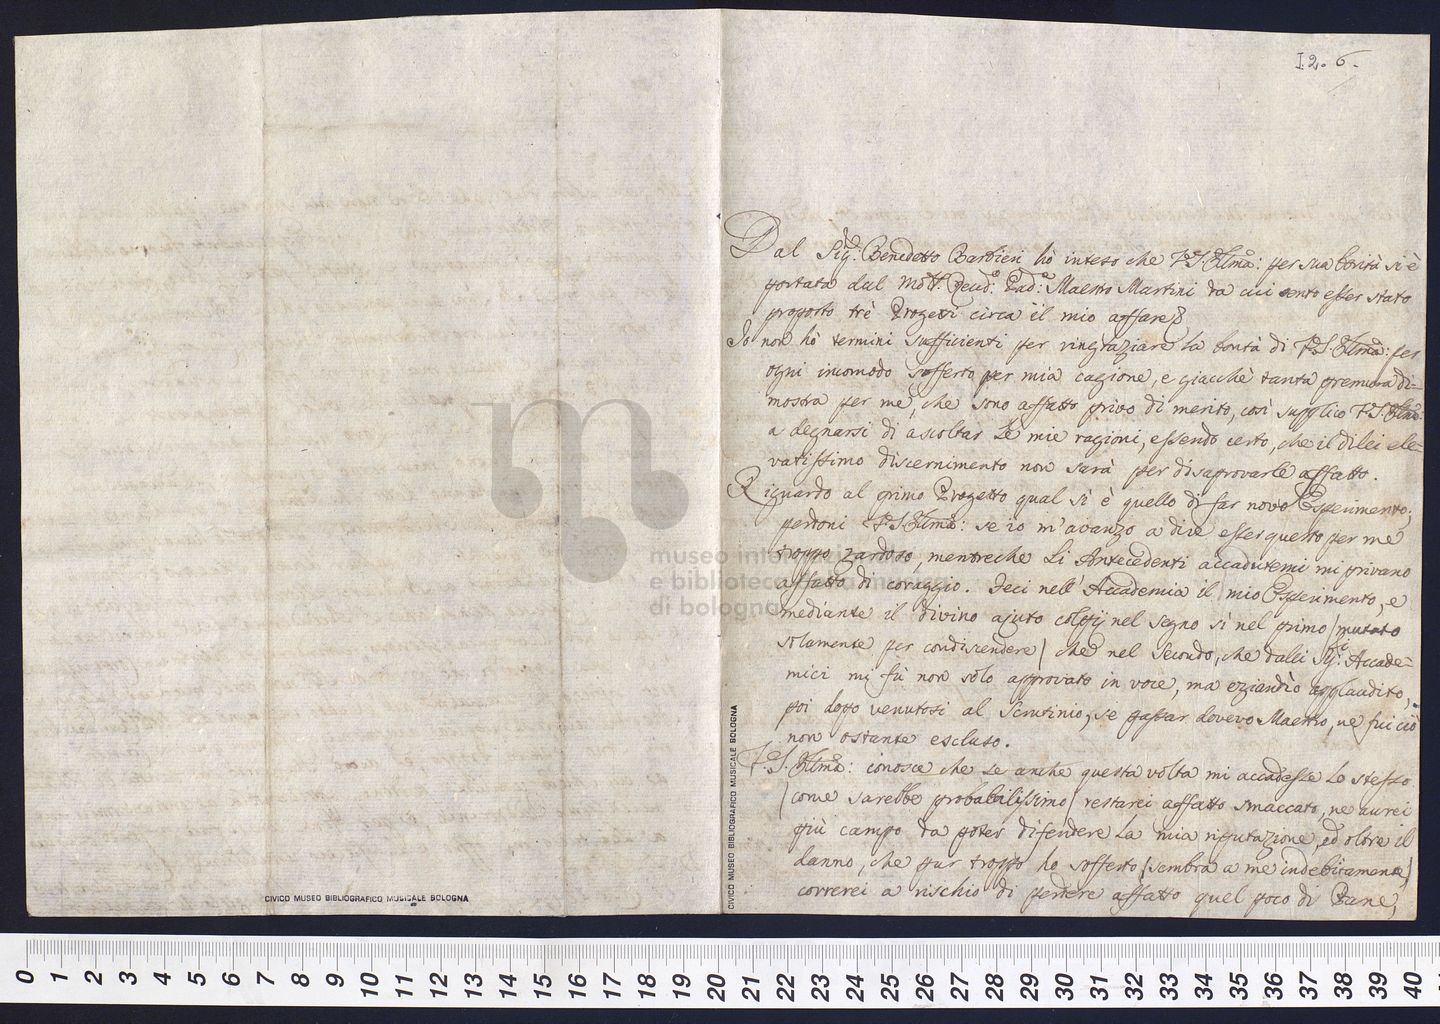 I. 2. 6.
Dal Sig.r Benedetto Barbieri hò inteso che V.S. Illma: per sua bontà si è
portata dal Molt. Reud.o Pad.e Maestro Martini da cui sento esser stato
proposto trè Progetti circa il mio affare
Io non hò termini sufficienti per ringraziare la bontà di V.S. Illma: per
ogni incomodo sofferto per mia cagione, e giacchè tanta premura di=
mostra per me, che sono affatto privo di merito, così supplico V.S. Illma:
a degnarsi di ascoltar le mie ragioni, essendo certo, che il di lei ele=
vatissimo discernimento non sarà per disaprovarle affatto.
Riguardo al primo Progetto qual si è quello di far novo Esperimento,
perdoni V.S. Illma: se io m'avanzo a dire esser questo per me
troppo zardoso, mentreche Li Antecedenti accadutemi mi privano
affatto di coraggio. Feci nell'Accademia il mio Esperimento, e
mediante il divino ajuto colpij nel segno sì nel primo (mutato
solamente per condiscendere) che nel Secondo, che dalli Sig.ri Accade=
mici mi fù non solo approvato in voce, ma eziandio applaudito,
poi doppo venutosi al Scrutinio, se passar dovevo Maestro, ne fui ciò
non ostante escluso.
V.S. Illma: conosce che se anche questa volta mi accadesse lo stesso
(come sarebbe probabilissimo) restarei affatto smaccato, ne aurei
più campo da poter difendere la mia riputazione, ed oltre il
danno, che pur troppo ho sofferto (sembra a me indebitamente)
correrei a rischio di perdere affatto quel poco di Pane,
museo internazionale
e biblioteca della musica
di bologna
CIVICO MUSEO BIBLIOGRAFICO MUSICALE BOLOGNA
CIVICO MUSEO BIBLIOGRAFICO MUSICALE BOLOGNA
CIVICO MUSEO BIBLIOGRAFICO MUSICALE BOLOGNA
0 1 2 3 4 5 6 7 8 9 10 11 12 13 14 15 16 17 18 19 20 21 22 23 24 25 26 27 28 29 30 31 32 33 34 35 36 37 38 39 40